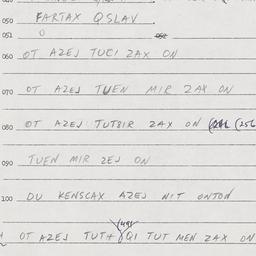 050 FARTAX QSLAV
051 0
060 OT AZEJ TUCI ZAX ON
070 OT AZEJ TUEN MIR ZAX ON
080 OT AZEJ TUTSIR ZAX ON (256
090 TUEN MIR ZEJ ON
100 OU KENSCAX AZEJ NIT ONTON
OT AZEJ TUTA QI TUT MEN ZAX ON